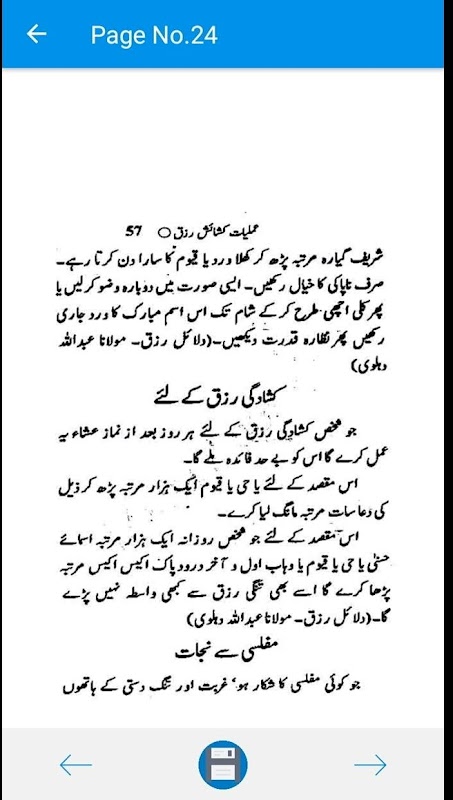 Page No.24
عملیات کشائش رزق ○ 57
شریف گیارہ مرتبہ پڑھ کر کھلا ورد یا قیوم کا سارا دن کرتا رہے۔
صرف ناپاکی کا خیال رکھیں۔ ایسی صورت میں دوبارہ وضو کر لیں یا
پھر کلی اچھی طرح کر کے شام تک اس اسم مبارک کا ورد جاری
رکھیں پھر نظارہ قدرت دیکھیں۔(دلائل رزق۔ مولانا عبداللہ
دہلوی)
کشادگی رزق کے لئے
جو شخص کشادگی رزق کے لئے ہر روز بعد از نماز عشاء یہ
عمل کرے گا اس کو بے حد فائدہ ملے گا۔
اس مقصد کے لئے یا حی یا قیوم ایک ہزار مرتبہ پڑھ کر ذیل
کی دعا سات مرتبہ مانگ لیا کرے۔
اس مقصد کے لئے جو شخص روزانہ ایک ہزار مرتبہ اسمائے
حسنیٰ یا حی یا قیوم یا وہاب اول و آخر درود پاک اکیس اکیس مرتبہ
پڑھا کرے گا اسے بھی تنگی رزق سے کبھی واسطہ نہیں پڑے
گا۔(دلائل رزق۔ مولانا عبداللہ دہلوی)
مفلسی سے نجات
جو کوئی مفلسی کا شکار ہو‘ غربت اور تنگ دستی کے ہاتھوں